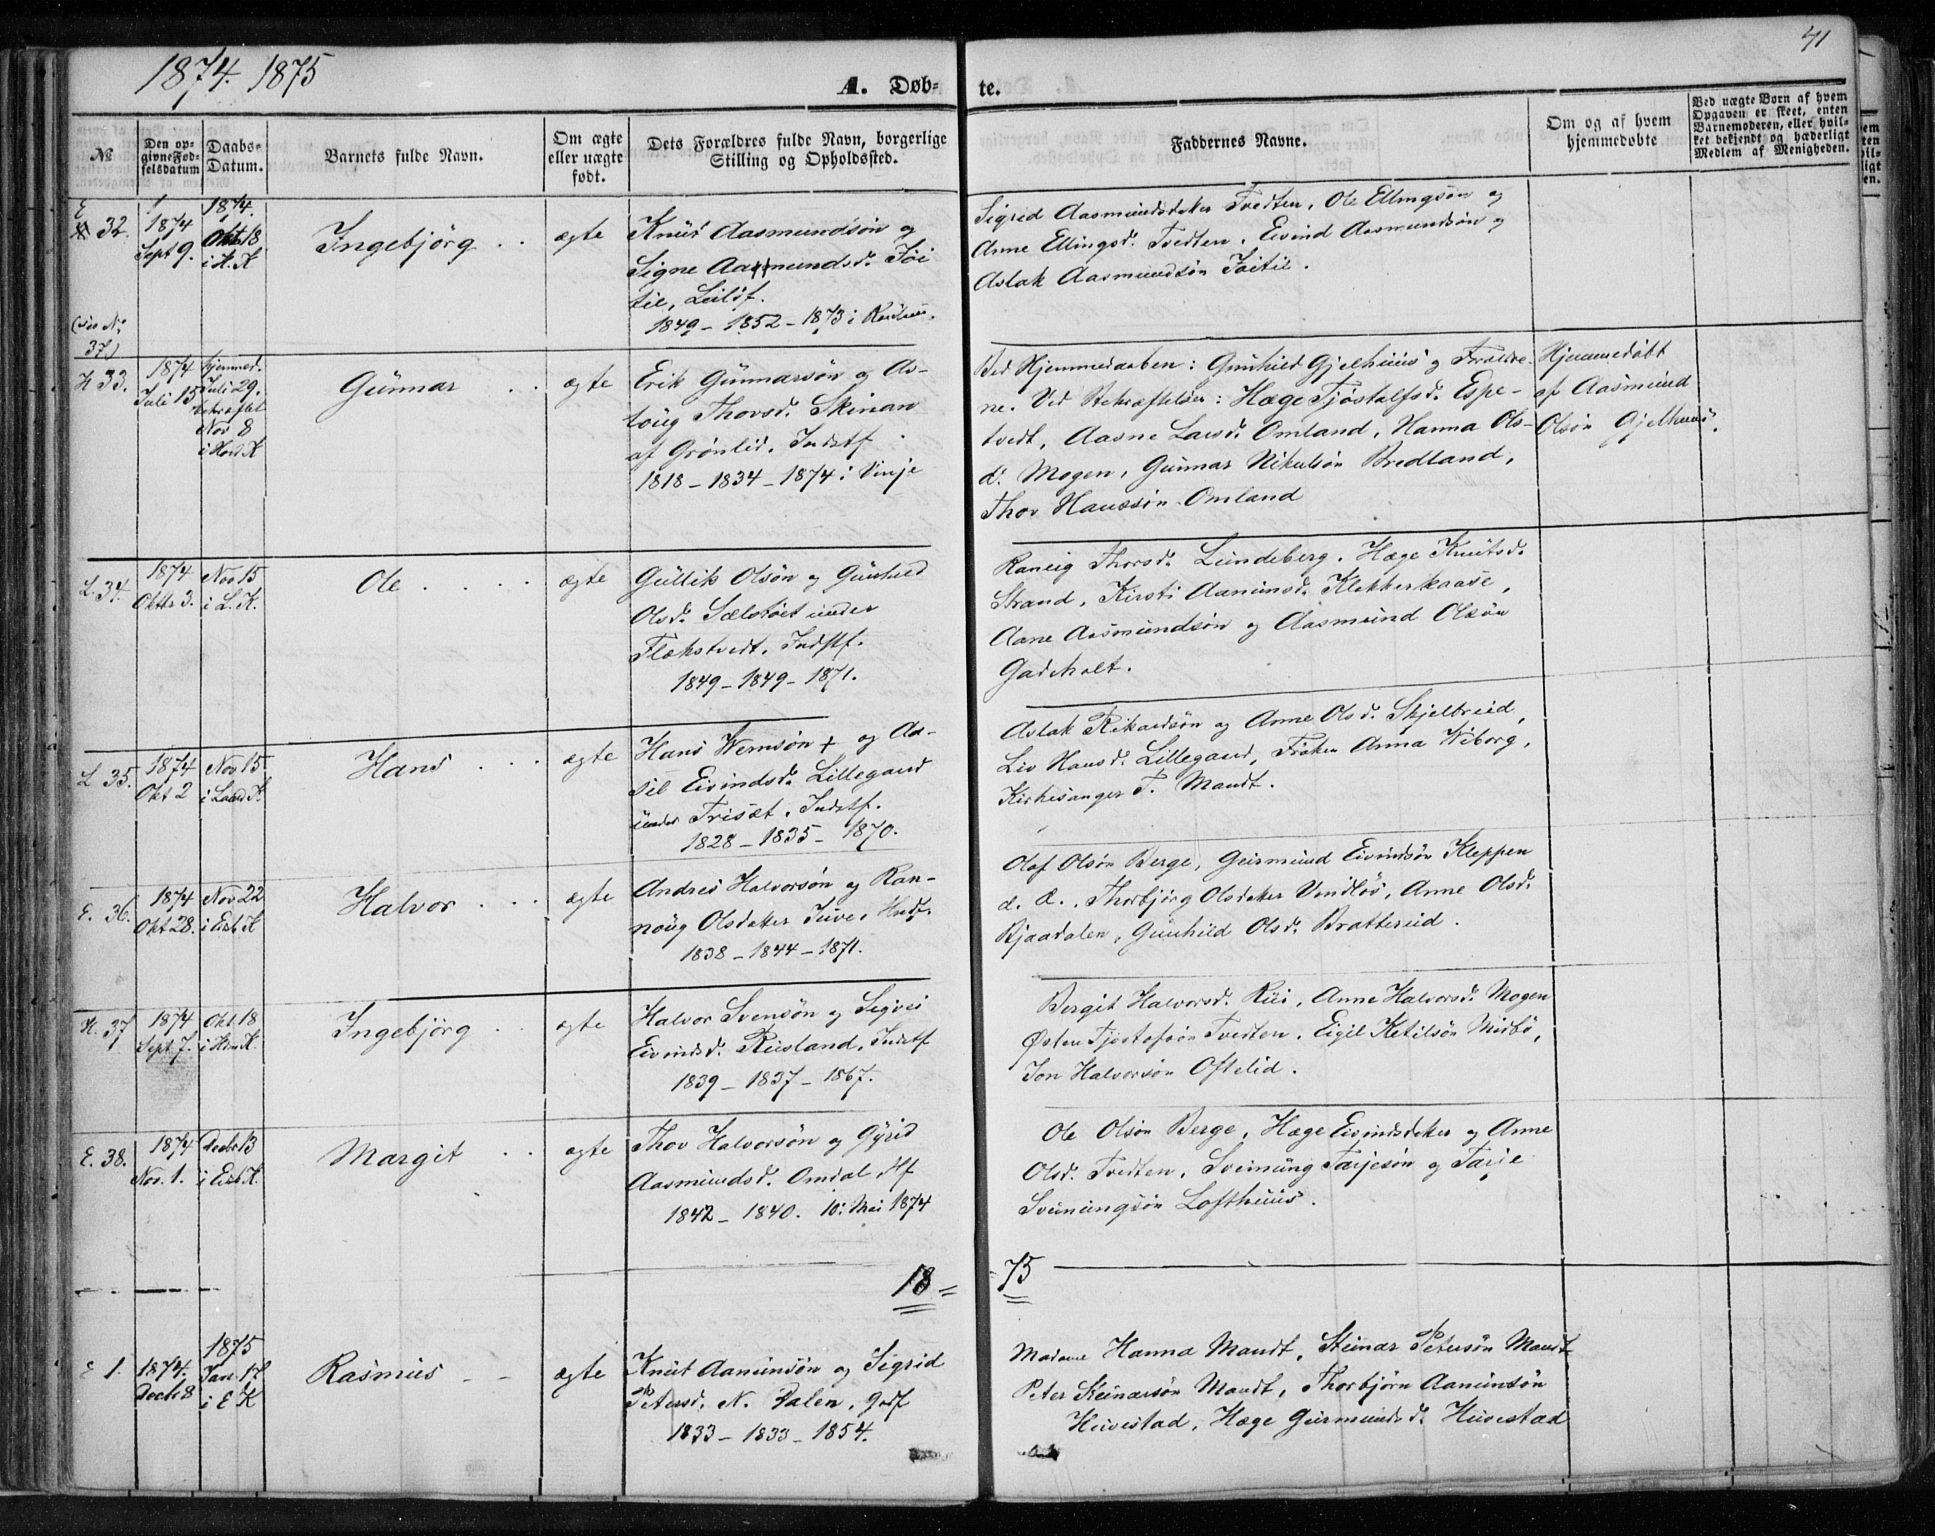 1874. 1875
71
A. Døb-
te.
№
Den op-
givne Fød-
selsdatum
Daabs-
Datum.
Barnets fulde Navn.
Om ægte
eller uægte
født.
Dets Forældres fulde Navn, borgerlige
Stilling og Opholdssted.
Faddernes Navne.
Om og af hvem
hjemmedøbte
Ved uægte Børn af hvem
Opgaven er skeet, enten
Barnemoderen, eller hvil-
ket bekjendt og hæderligt
Medlem af Menigheden.
E
32.
1874
Sept 9.
1874.
Okt 18
i H. K
Ingebjörg
ægte
Knut Aasmundsön og
Signe Aasmundsd.
1849 - 1852 - 1873 i
Sigrid Aasmundsdoter Tvedten, Ole Ellingsön og
Anne Ellingsd. Tvedten, Eivind Aasmundsön og
Aslak Aasmundsön
37)
H 33.
1874
Juli 15
hjemmed.
Juli 29.
bekræftet
Nov 8
i Hövd K
Günnar
ægte
Erik Günnarsön og As-
loug Thorsd. Skinan
af Grönlid, Indstf.
1818 - 1834 - 1874 i Vinje
Ved Hjemmedaaben: Gunhild Gjelhuus og Forældre-
ne. Ved Bekræftelsen: Hæge Tjöstolfsd. Espe-
tvedt, Aasne Larsd. Omland, Hanna Ols-
d. Mogen, Gunnar Nikulsön Bredland,
Thor Hansön Omland
Hjemmedöbt
af Aasmund
Olsön Gjelhuus.
L 34.
1874
Oktbr 3.
Nov 15
i L. K.
Ole
ægte
Gullik Olsön og Gunhild
Olsd. under
Flekstvedt, Indstf.
1849 - 1849 - 1871.
Raneig Thorsd. Lundeberg, Hæge Knutsd.
Strand, Kirsti Aamunsd. Klekkerkaase,
Aane Aasmundsön og Aasmund Olsön
Gardeholt.
L 35.
1874
Okt 2
Nov 15.
i Laard K
Hans
ægte
Hans Wemsön + og Aa-
sil Eivindsd. Lillegaard
under Triset, Indstf.
1828 - 1835 - 1870.
Aslak Rikardsön og Anne Olsd. Skjelbreid,
Liv Hansd. Lillegaard, Fröken Anna Wiborg,
Kirkesanger T. Mandt.
E. 36.
1874
Okt 28.
Nov 22
i Eidsb K
Halvor
ægte
Andres Halvorsön og Ran-
noug Olsdoter Juve,
1838 - 1844 - 1871.
Olaf Olsön Berge, Geirmund Eivindsön Kleppen
d. Æ., Thorbjörg Olsdoter Vindlös, Anne Olsd.
Bjaadalen, Gunhild Olsd. Brattereid.
H. 37
1874
Sept 7.
Okt 18
i H K.
Ingebjörg
ægte
Halvor Svensön og Sigvei
Eivindsd. Rusland, Indstf
1839 - 1837 - 1867.
Bergit Halvorsd. Rui, Anne Halvorsd. Mogen
Östen Tjöstofsön Tvedten, Eigil Ketilsön Midbö,
Jon Halvorsön Oftelid.
E. 38.
1874
Nov. 1.
Decbr 13
i Eidsb K.
Margit
ægte
Thor Halvorsön og Gyrid
Aasmundsd. Omdal
1842 - 1840. 10. Mai 1874
Ole Olsön Berge, Hæge Eivindsdoter og Anne
Olsd. Tvedten, Sveinung Tarjesön og Tarje
Sveinungsön Lofthuus.
18 =
- 75
E 1.
1874.
Decb. 8
1875
Jan 17
i E K
Rasmus
ægte
Knut Aamunsön og Sigrid
Petersd. N. Dalen,
1833 - 1833 - 1854.
Madame Hanna Mandt, Steinar Petersön Mandt
Peter Steinarsön Mandt, Thorbjörn Aamunsön
Huvestad, Hæge Geirmundsd. Huvestad